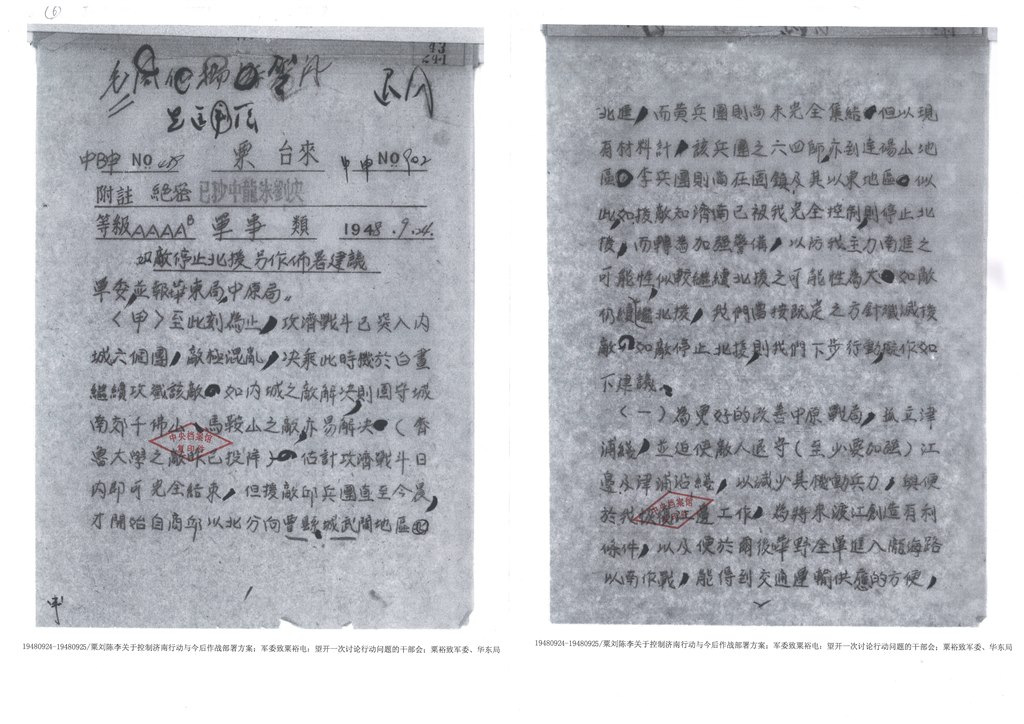 (6)
43
244
毛 周
退
中B申 NO
粟 台來
申 申 NO 902
附註 絕密 已抄中龍朱劉史
等級AAAAB 軍事 類 1948.9.24.
如敵停止北援另作佈署建議
軍委,並報華東局,中原局。
〈甲〉至此刻為止,攻濟戰斗已突入內
城六個團,敵極混亂,决乘此時機於白晝
繼續攻殲該敵。如內城之敵解决,則固守城
南郊千佛山、馬鞍山之敵,亦易解决。(齊
魯大學之敵昨已投降)。估計攻濟戰斗日
內即可完全結束,但援敵邱兵團直至今晨,
才開始自商邱以北分向曹縣城武間地區
中央档案馆
复印件
1
北進,而黃兵團則尚未完全集結。但以現
有材料計,該兵團之六四師,亦到達碭山地
區。李兵團則尚在固鎮及其以東地區。似
此,如援敵知濟南已被我完全控制,則停止北
援,而轉為加強警備,以防我主力南進之
可能性,似較繼續北援之可能性為大。如敵
仍續北援,我們當按既定之方針殲滅援
敵。如敵停止北援,則我們下步行動擬作如
下建議。
(一)為更好的改善中原戰局,孤立津
浦綫,並迫使敵人退守(至少要加强)江
邊及津浦沿綫,以减少其機動兵力,與便
於我恢復江邊工作,為將來渡江創造有利
條件,以及便於爾後華野全軍進入隴海路
以南作戰,能得到交通運輸供應的方便,
中央档案馆
复印件
19480924-19480925/粟刘陈李关于控制济南行动与今后作战部署方案;军委致粟裕电:望开一次讨论行动问题的干部会;粟裕致军委、华东局
19480924-19480925/粟刘陈李关于控制济南行动与今后作战部署方案;军委致粟裕电:望开一次讨论行动问题的干部会;粟裕致军委、华东局